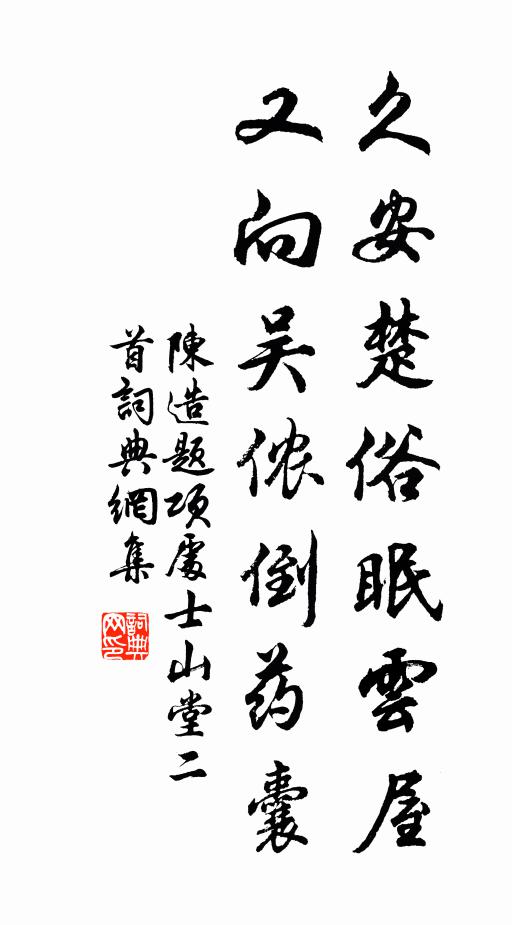 久安楚俗眠雲屋
又向吴侬倒药囊
陳造題項處士山堂二
首詞典網集
詞典网印